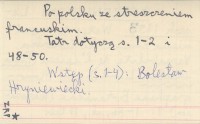 Po polsku ze streszczeniem
francuskim.
Tatr dotyczą s. 1-2 i
48-50.
Wstęp (s. 1-4): Bolesław
Hryniewiecki.